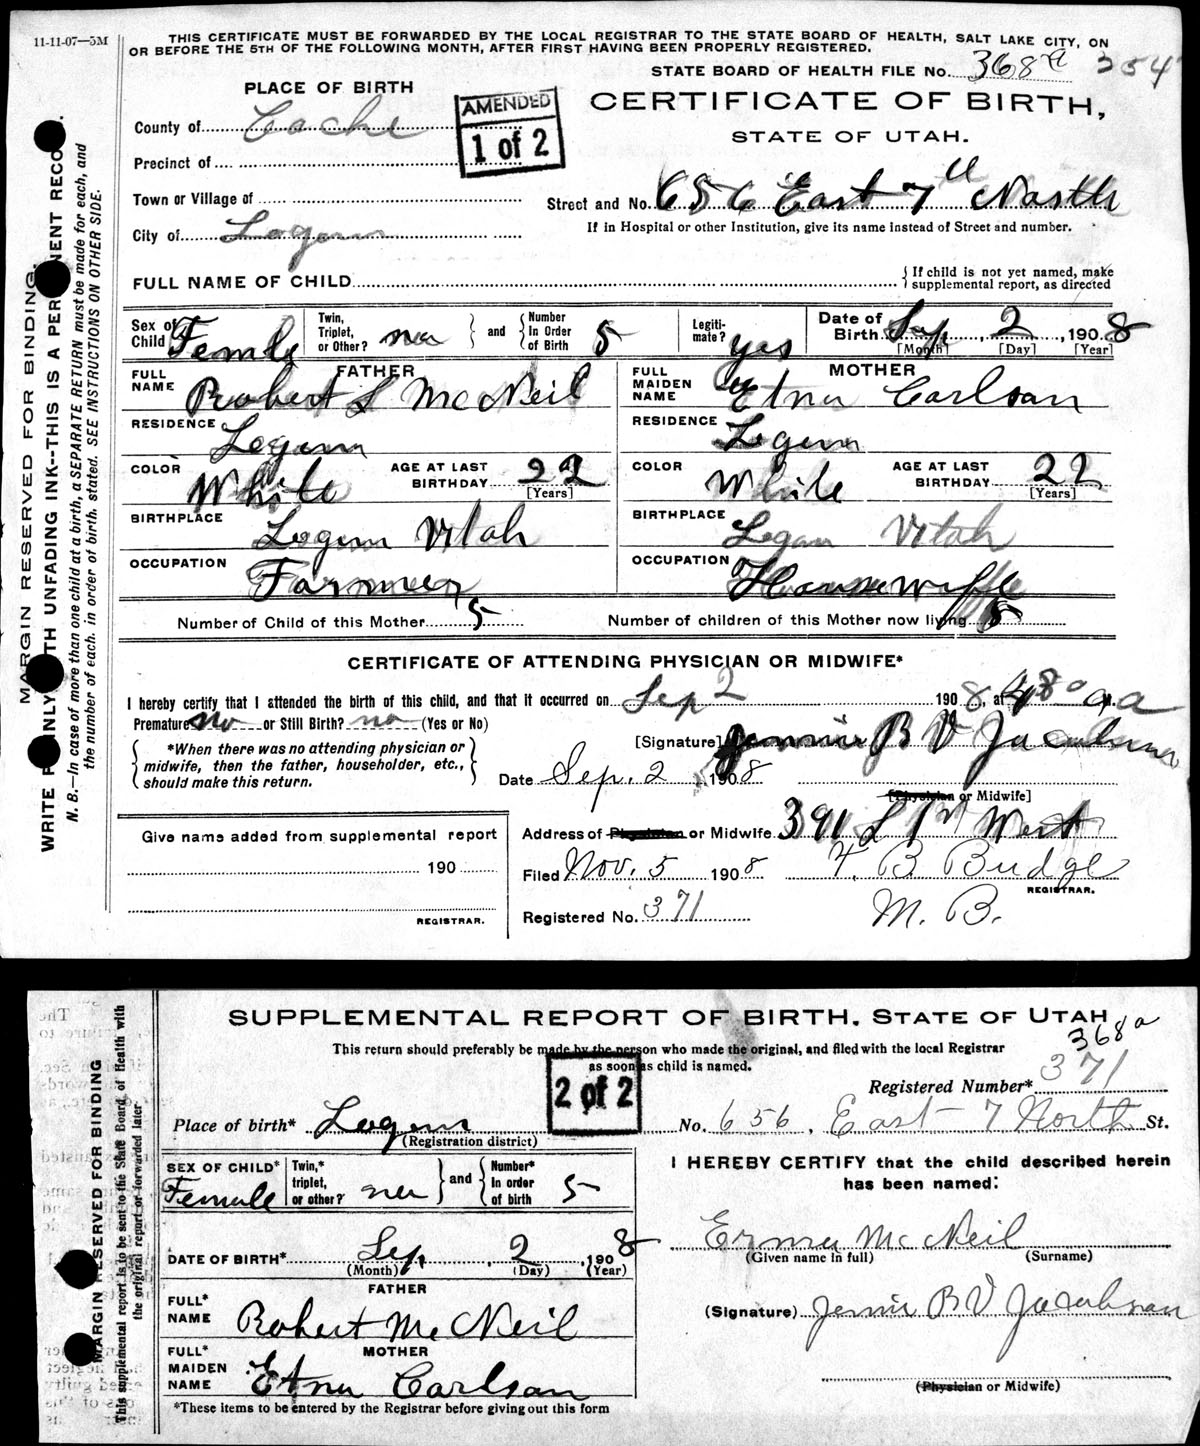 11-11-07—5M
THIS CERTIFICATE MUST BE FORWARDED BY THE LOCAL REGISTRAR TO THE STATE BOARD OF HEALTH, SALT LAKE CITY, ON
OR BEFORE THE 5TH OF THE FOLLOWING MONTH, AFTER FIRST HAVING BEEN PROPERLY REGISTERED.
STATE BOARD OF HEALTH FILE No. 368a 354
PLACE OF BIRTH
CERTIFICATE OF BIRTH,
STATE OF UTAH.
AMENDED
1 of 2
County of Cache
Precinct of
Town or Village of
City of Logan
Street and No. 656 East 7th North
If in Hospital or other Institution, give its name instead of Street and number.
FULL NAME OF CHILD
If child is not yet named, make
supplemental report, as directed
Sex of Child Female
Twin, Triplet, or Other? no
and Number In Order of Birth 5
Legiti-mate? yes
Date of Birth Sep 2, 1908
[Month] [Day] [Year]
FATHER
FULL NAME Robert L McNeil
RESIDENCE Logan
COLOR White AGE AT LAST BIRTHDAY 22 [Years]
BIRTHPLACE Logan Utah
OCCUPATION Farmer
MOTHER
FULL MAIDEN NAME Etna Carlson
RESIDENCE Logan
COLOR White AGE AT LAST BIRTHDAY 22 [Years]
BIRTHPLACE Logan Utah
OCCUPATION Housewife
Number of Child of this Mother 5 Number of children of this Mother now living 5
CERTIFICATE OF ATTENDING PHYSICIAN OR MIDWIFE*
I hereby certify that I attended the birth of this child, and that it occurred on Sep 2 1908, at
Premature no or Still Birth? no (Yes or No)
[Signature] Jennie B V Jacobson
*When there was no attending physician or
midwife, then the father, householder, etc.,
should make this return.
Date Sep. 2 1908
[Physician or Midwife]
Address of Physician or Midwife 391 S 1st West
Give name added from supplemental report
190
REGISTRAR.
Filed Nov. 5 1908 T. B Budge
REGISTRAR.
M. B.
Registered No. 371
MARGIN RESERVED FOR BINDING.
WRITE ONLY WITH UNFADING INK--THIS IS A PERMANENT RECORD.
N. B.—In case of more than one child at a birth, a SEPARATE RETURN must be made for each, and
the number of each. in order of birth. stated. SEE INSTRUCTIONS ON OTHER SIDE.
SUPPLEMENTAL REPORT OF BIRTH, STATE OF UTAH
368a
This return should preferably be made by the person who made the original, and filed with the local Registrar
as soon as child is named.
2 of 2
Registered Number* 371
Place of birth* Logan
(Registration district)
No. 656, East 7 North St.
SEX OF CHILD* Female
Twin,* triplet, or other? no
and Number* In order of birth 5
I HEREBY CERTIFY that the child described herein
has been named:
Erma McNeil
(Given name in full) (Surname)
DATE OF BIRTH* Sep. 2, 1908
(Month) (Day) (Year)
FATHER
FULL* NAME Robert McNeil
(Signature) Jennie B V Jacobson
MOTHER
FULL* MAIDEN NAME Etna Carlson
(Physician or Midwife)
*These items to be entered by the Registrar before giving out this form
MARGIN RESERVED FOR BINDING
This supplemental report is to be sent to the State Board of Health with
the original report or forwarded later